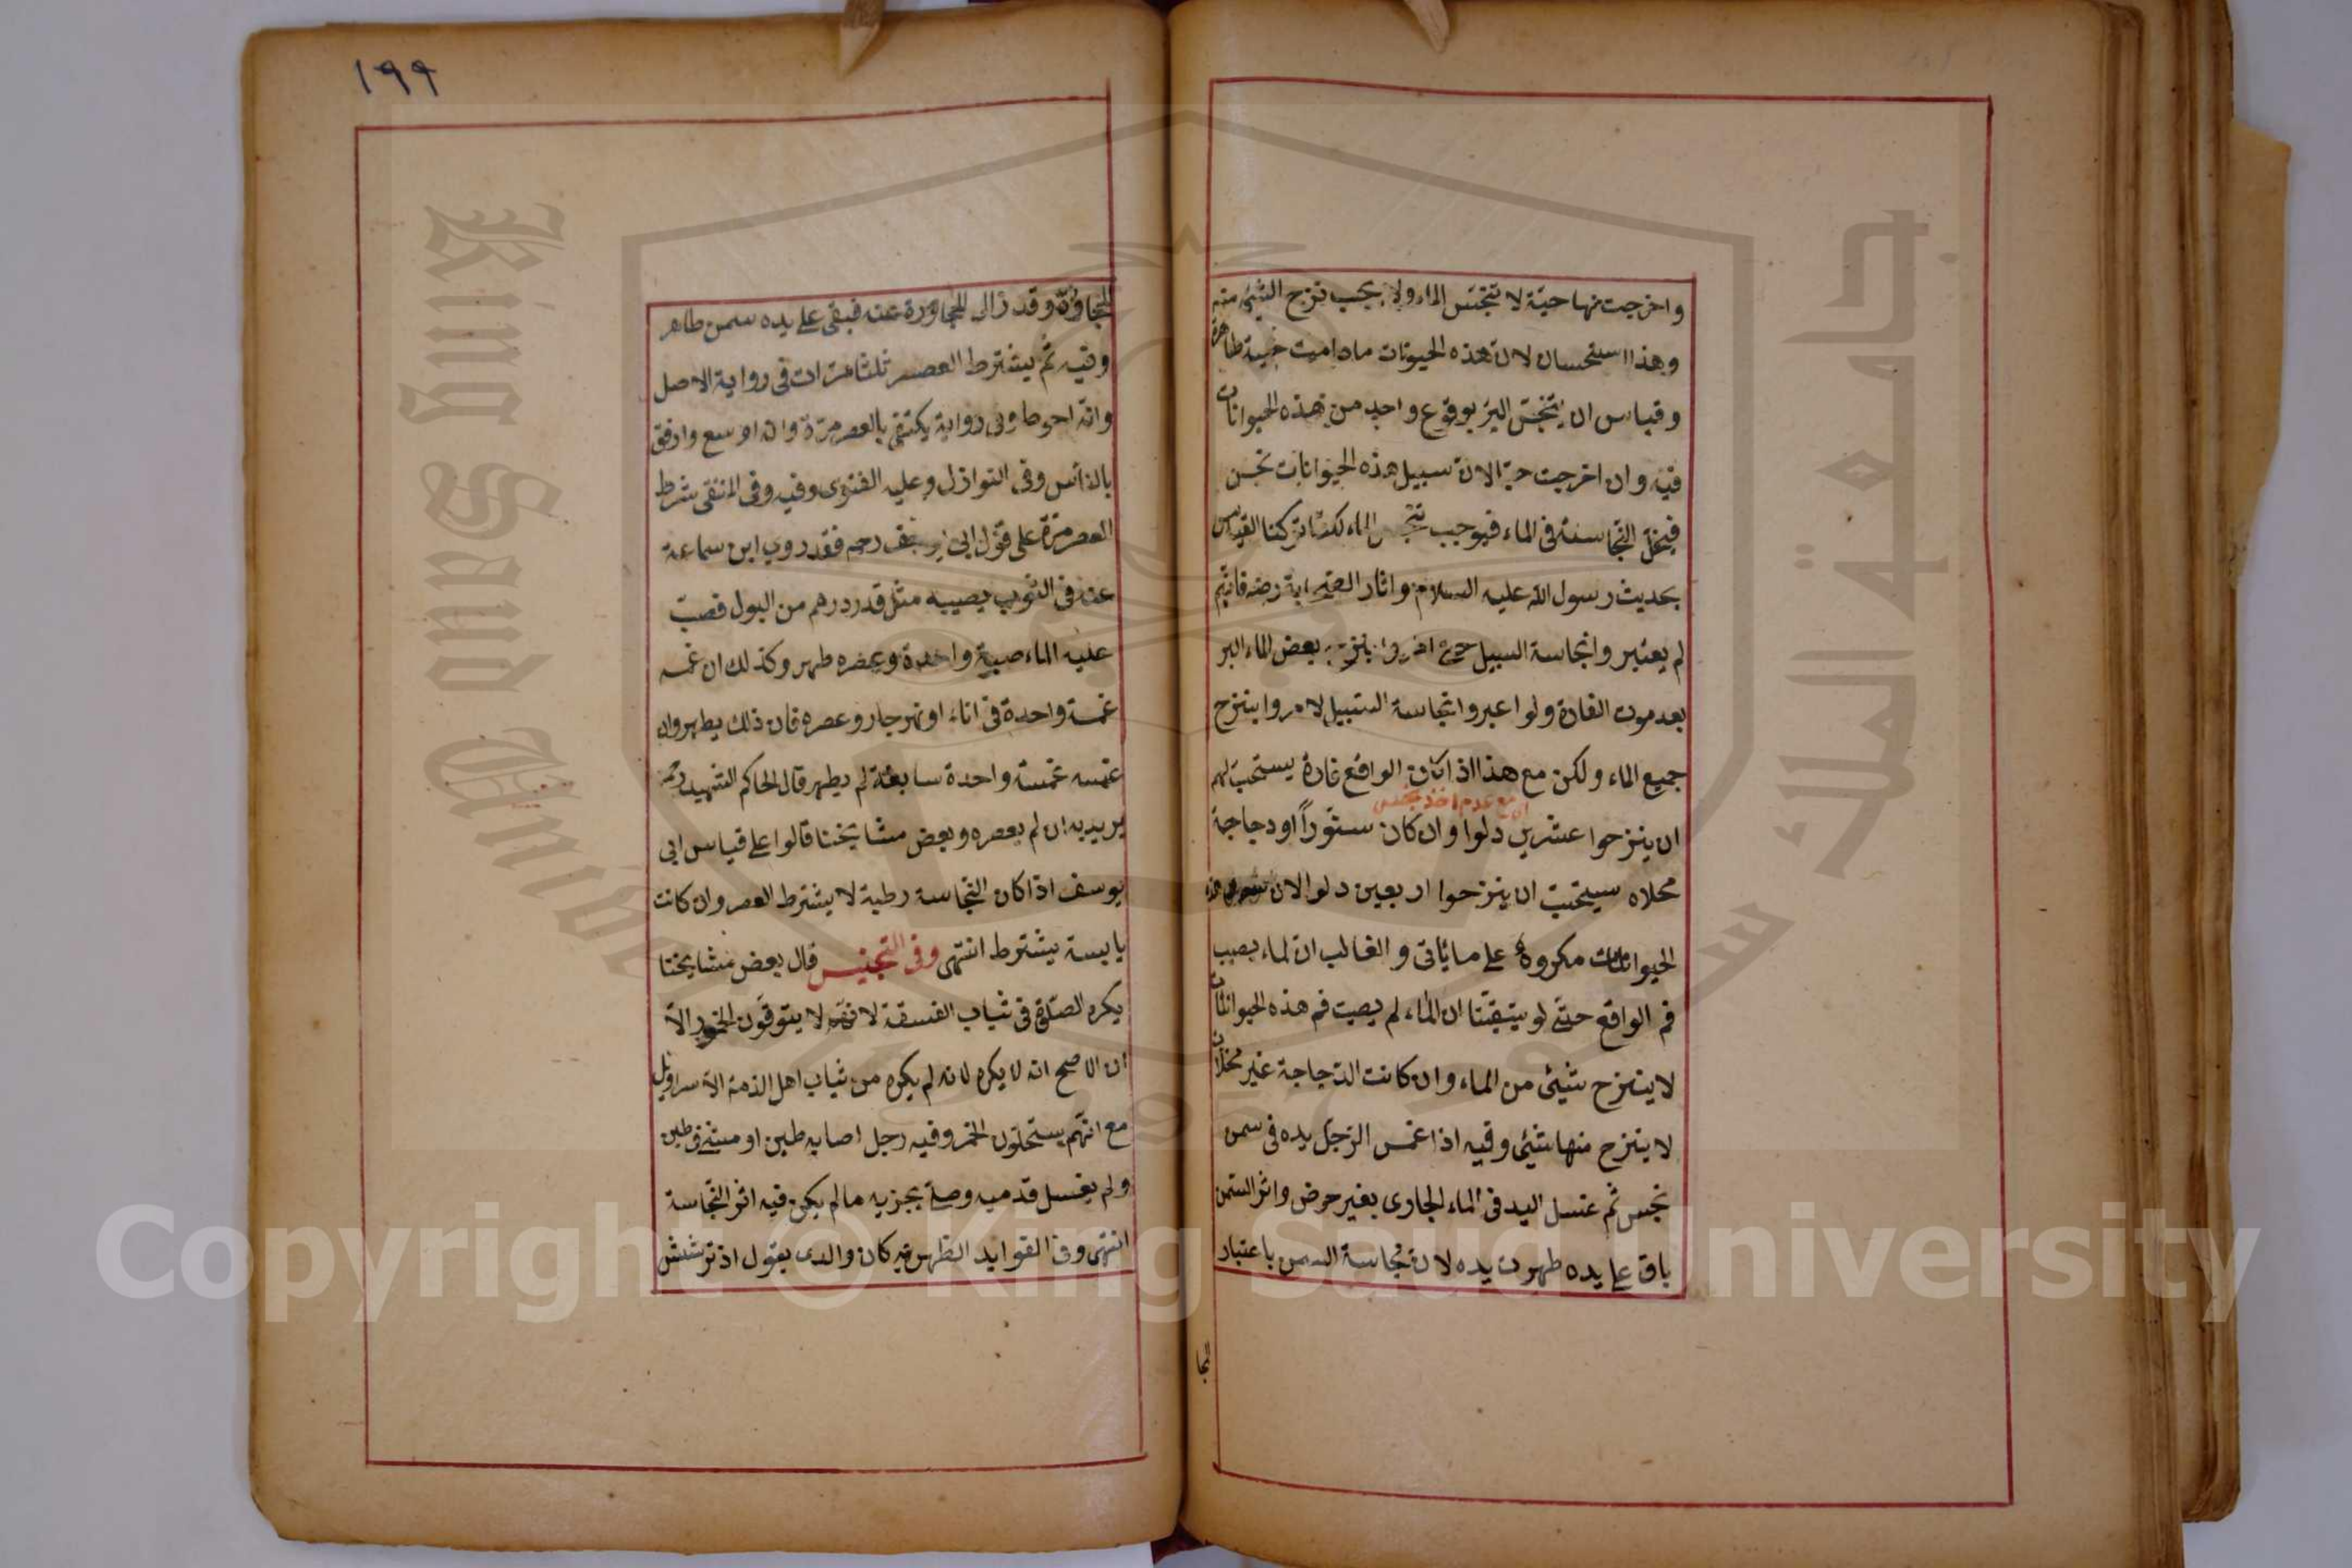 واخرجت منها حيّة لا تنجّس الماء ولا يجب نزح الشئ منه
وهذا استحسان لانّ هذه الحيوانات مادامت حيية طاهرة
وقياس ان يتنجّس البئر بوقوع واحد من هذه الحيوانات
فيه وان اخرجت حيّا لانّ سبيل هذه الحيوانات نجس
فيخلّ النّجاسة فى الماء فيوجب تنجّس الماء لكنّا تركنا القياس
بحديث رسول الله عليه السلام واثار الصحابة رضه فانهم
لم يعتبروا نجاسة السبيل حتى امروا بنزح بعض الماء البر
بعد موت الفارة ولو اعبروا نجاسة السّبيل لامروا بنزح
جميع الماء ولكن مع هذا اذا كان الواقع فارة يستحبّ لهم
ان مع عدم اخذ بنجس
ان ينزحوا عشرين دلوا وان كان سنّوراً او دجاجة
مخلاه سيتحبّ ان ينزحوا اربعين دلوا لان سور هذه
الحيوانات مكروه على ما يأتى والغالب ان الماء يصيب
فم الواقع حتّى لو تيقّنّا ان الماء لم يصب فم هذه الحيوانات
لا ينزح شئ من الماء وان كانت الدّجاجة غير مخلات
لا ينزح منها شئ وفيه اذا غمس الرّجل يده فى سمن
نجس ثم غسل اليد فى الماء الجارى بغير حرض واثر السّمن
باق على يده طهرت يده لانّ نجاسة السمن باعتبار
المجا
١٩٩
المجاورة وقد زال المجاورة عنه فبقى على يده سمن طاهر
وفيه ثم يشترط العصر ثلث مرّات فى رواية الاصل
وانّه احوط وفى رواية يكتفى بالعصر مرّة وانه اوسع وارفق
بالنّاس وفى النوازل وعليه الفتوى وفيه وفى المنتقى شرط
العصر مرّة على قول ابى يوسف رحه فقد روى ابن سماعة
عنه فى الثوب يصيبه مثل قدر درهم من البول فصبّ
عليه الماء صبية واحدة وعصره طهر وكذلك ان غمسه
غمسة واحدة فى اناء او نهر جار وعصره فان ذلك يطهر وان
غمسه غمسة واحدة سابغة لم يطهر قال الحاكم الشهيد رحه
يريد به ان لم يعصره وبعض مشايخنا قالوا على قياس ابى
يوسف اذا كان النّجاسة رطبة لا يشترط العصر وان كانت
يابسة يشترط انتهى وفى التجنيس قال بعض مشايخنا
يكره الصّلوة فى ثياب الفسقة لانهم لا يتوقّون الخمور الاّ
ان الاصح انه لا يكره لانه لم يكره من ثياب اهل الذمة الاّ سراويل
مع انّهم يستحلّون الخمر وفيه رجل اصابه طين او مشى فى طين
ولم يغسل قدميه وصلّى يجزيه مالم يكن فيه اثر النّجاسة
انتهى وفى الفوايد الظهيرية كان والدى يقول اذ ترشش
جامعة الملك سعود
King Saud University
Copyright © King Saud University